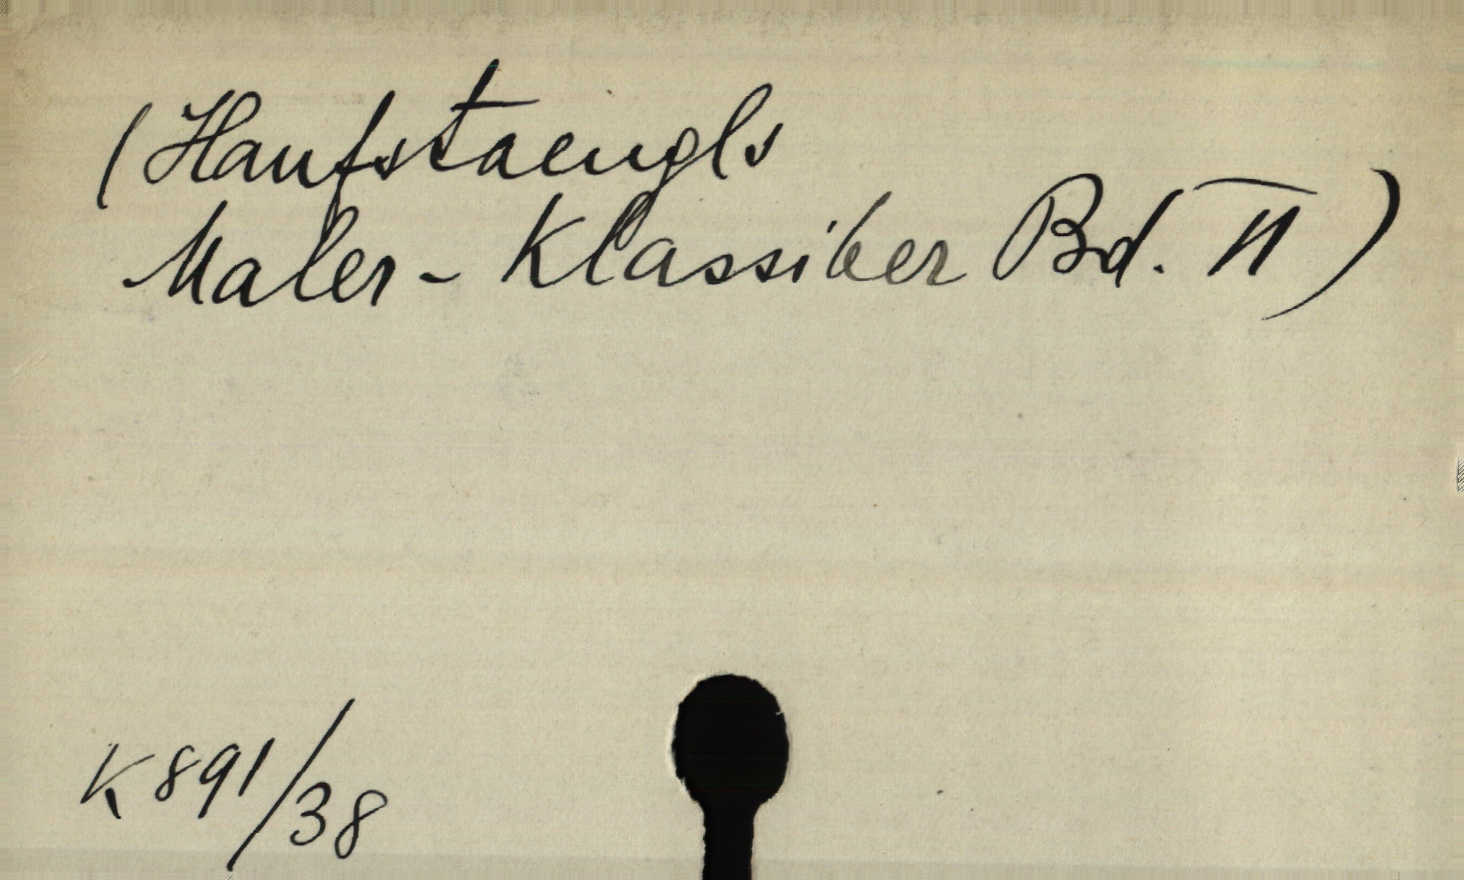 (Hanfstaengls
Maler-Klassiker Bd. II)
K 891/38